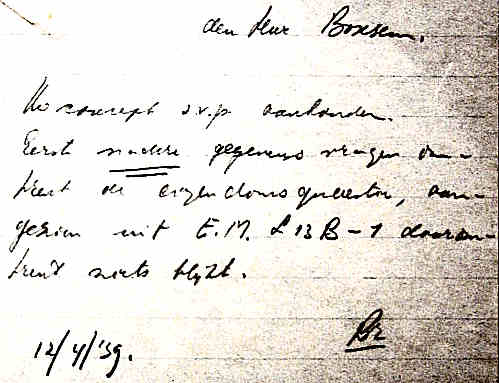 den Heer Boksem.
Uw concept s.v.p. aanhouden.
Eerst nadere gegevens vragen om-
trent de eigendomsquaestie, aan-
gezien uit E.M. L 13 B-1 daarom-
trent niets blijkt.
12/4/'39.